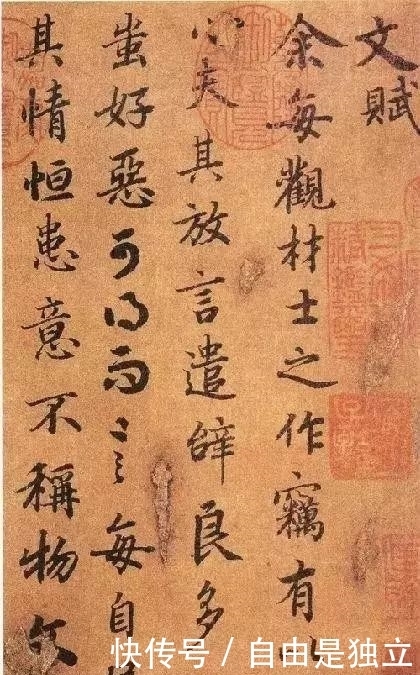 文賦
余每觀材士之作竊有
心夫其放言遣辭良多
蚩好惡可得而言每自
其情恒患意不稱物文
快传号 / 自由是独立